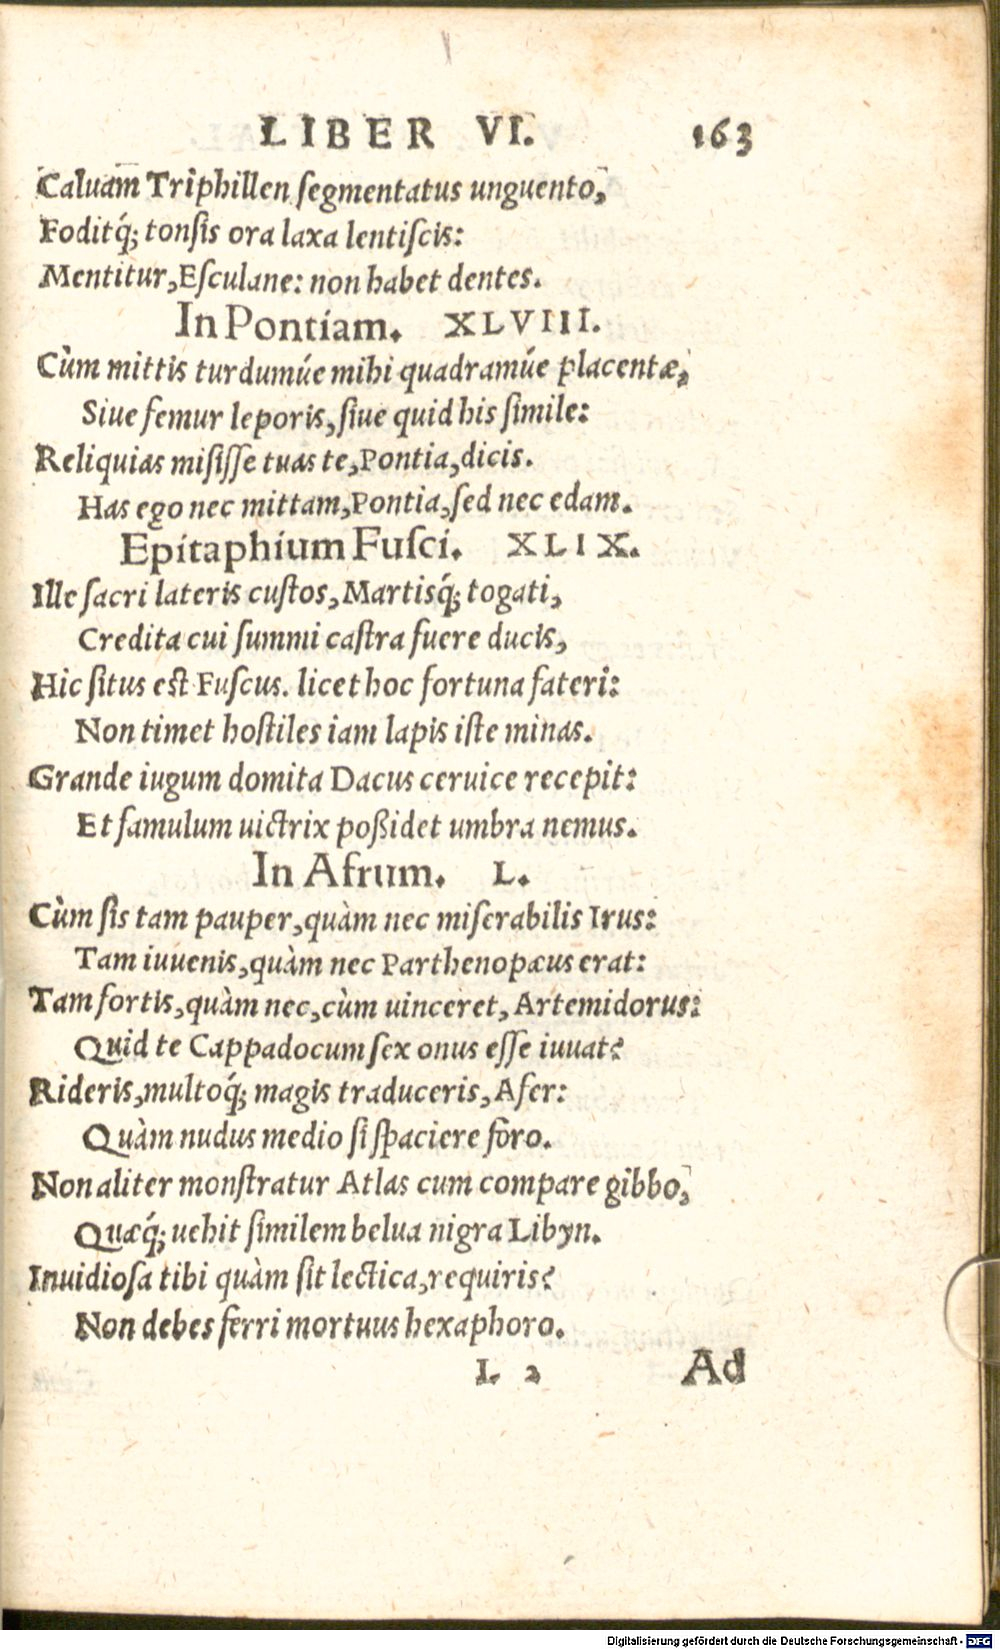 LIBER VI. 163
Caluam Triphillen segmentatus unguento,
Foditq́; tonsis ora laxa lentiscis:
Mentitur, Esculane: non habet dentes.
In Pontiam. XLVIII.
Cùm mittis turdumúe mihi quadramúe placentæ,
Siue femur leporis, siue quid his simile:
Reliquias misisse tuas te, Pontia, dicis.
Has ego nec mittam, Pontia, sed nec edam.
Epitaphium Fusci. XLIX.
Ille sacri lateris custos, Martisq́; togati,
Credita cui summi castra fuere ducis,
Hic situs est Fuscus. licet hoc fortuna fateri:
Non timet hostiles iam lapis iste minas.
Grande iugum domita Dacus ceruice recepit:
Et famulum uictrix poßidet umbra nemus.
In Afrum. L.
Cùm sis tam pauper, quàm nec miserabilis Irus:
Tam iuuenis, quàm nec Parthenopæus erat:
Tam fortis, quàm nec, cùm uinceret, Artemidorus:
Quid te Cappadocum sex onus esse iuuat?
Rideris, multoq́; magis traduceris, Afer:
Quàm nudus medio si spaciere foro.
Non aliter monstratur Atlas cum compare gibbo,
Quæq́; uehit similem belua nigra Libyn.
Inuidiosa tibi quàm sit lectica, requiris?
Non debes ferri mortuus hexaphoro.
L 2 Ad
Digitalisierung gefördert durch die Deutsche Forschungsgemeinschaft - DFG